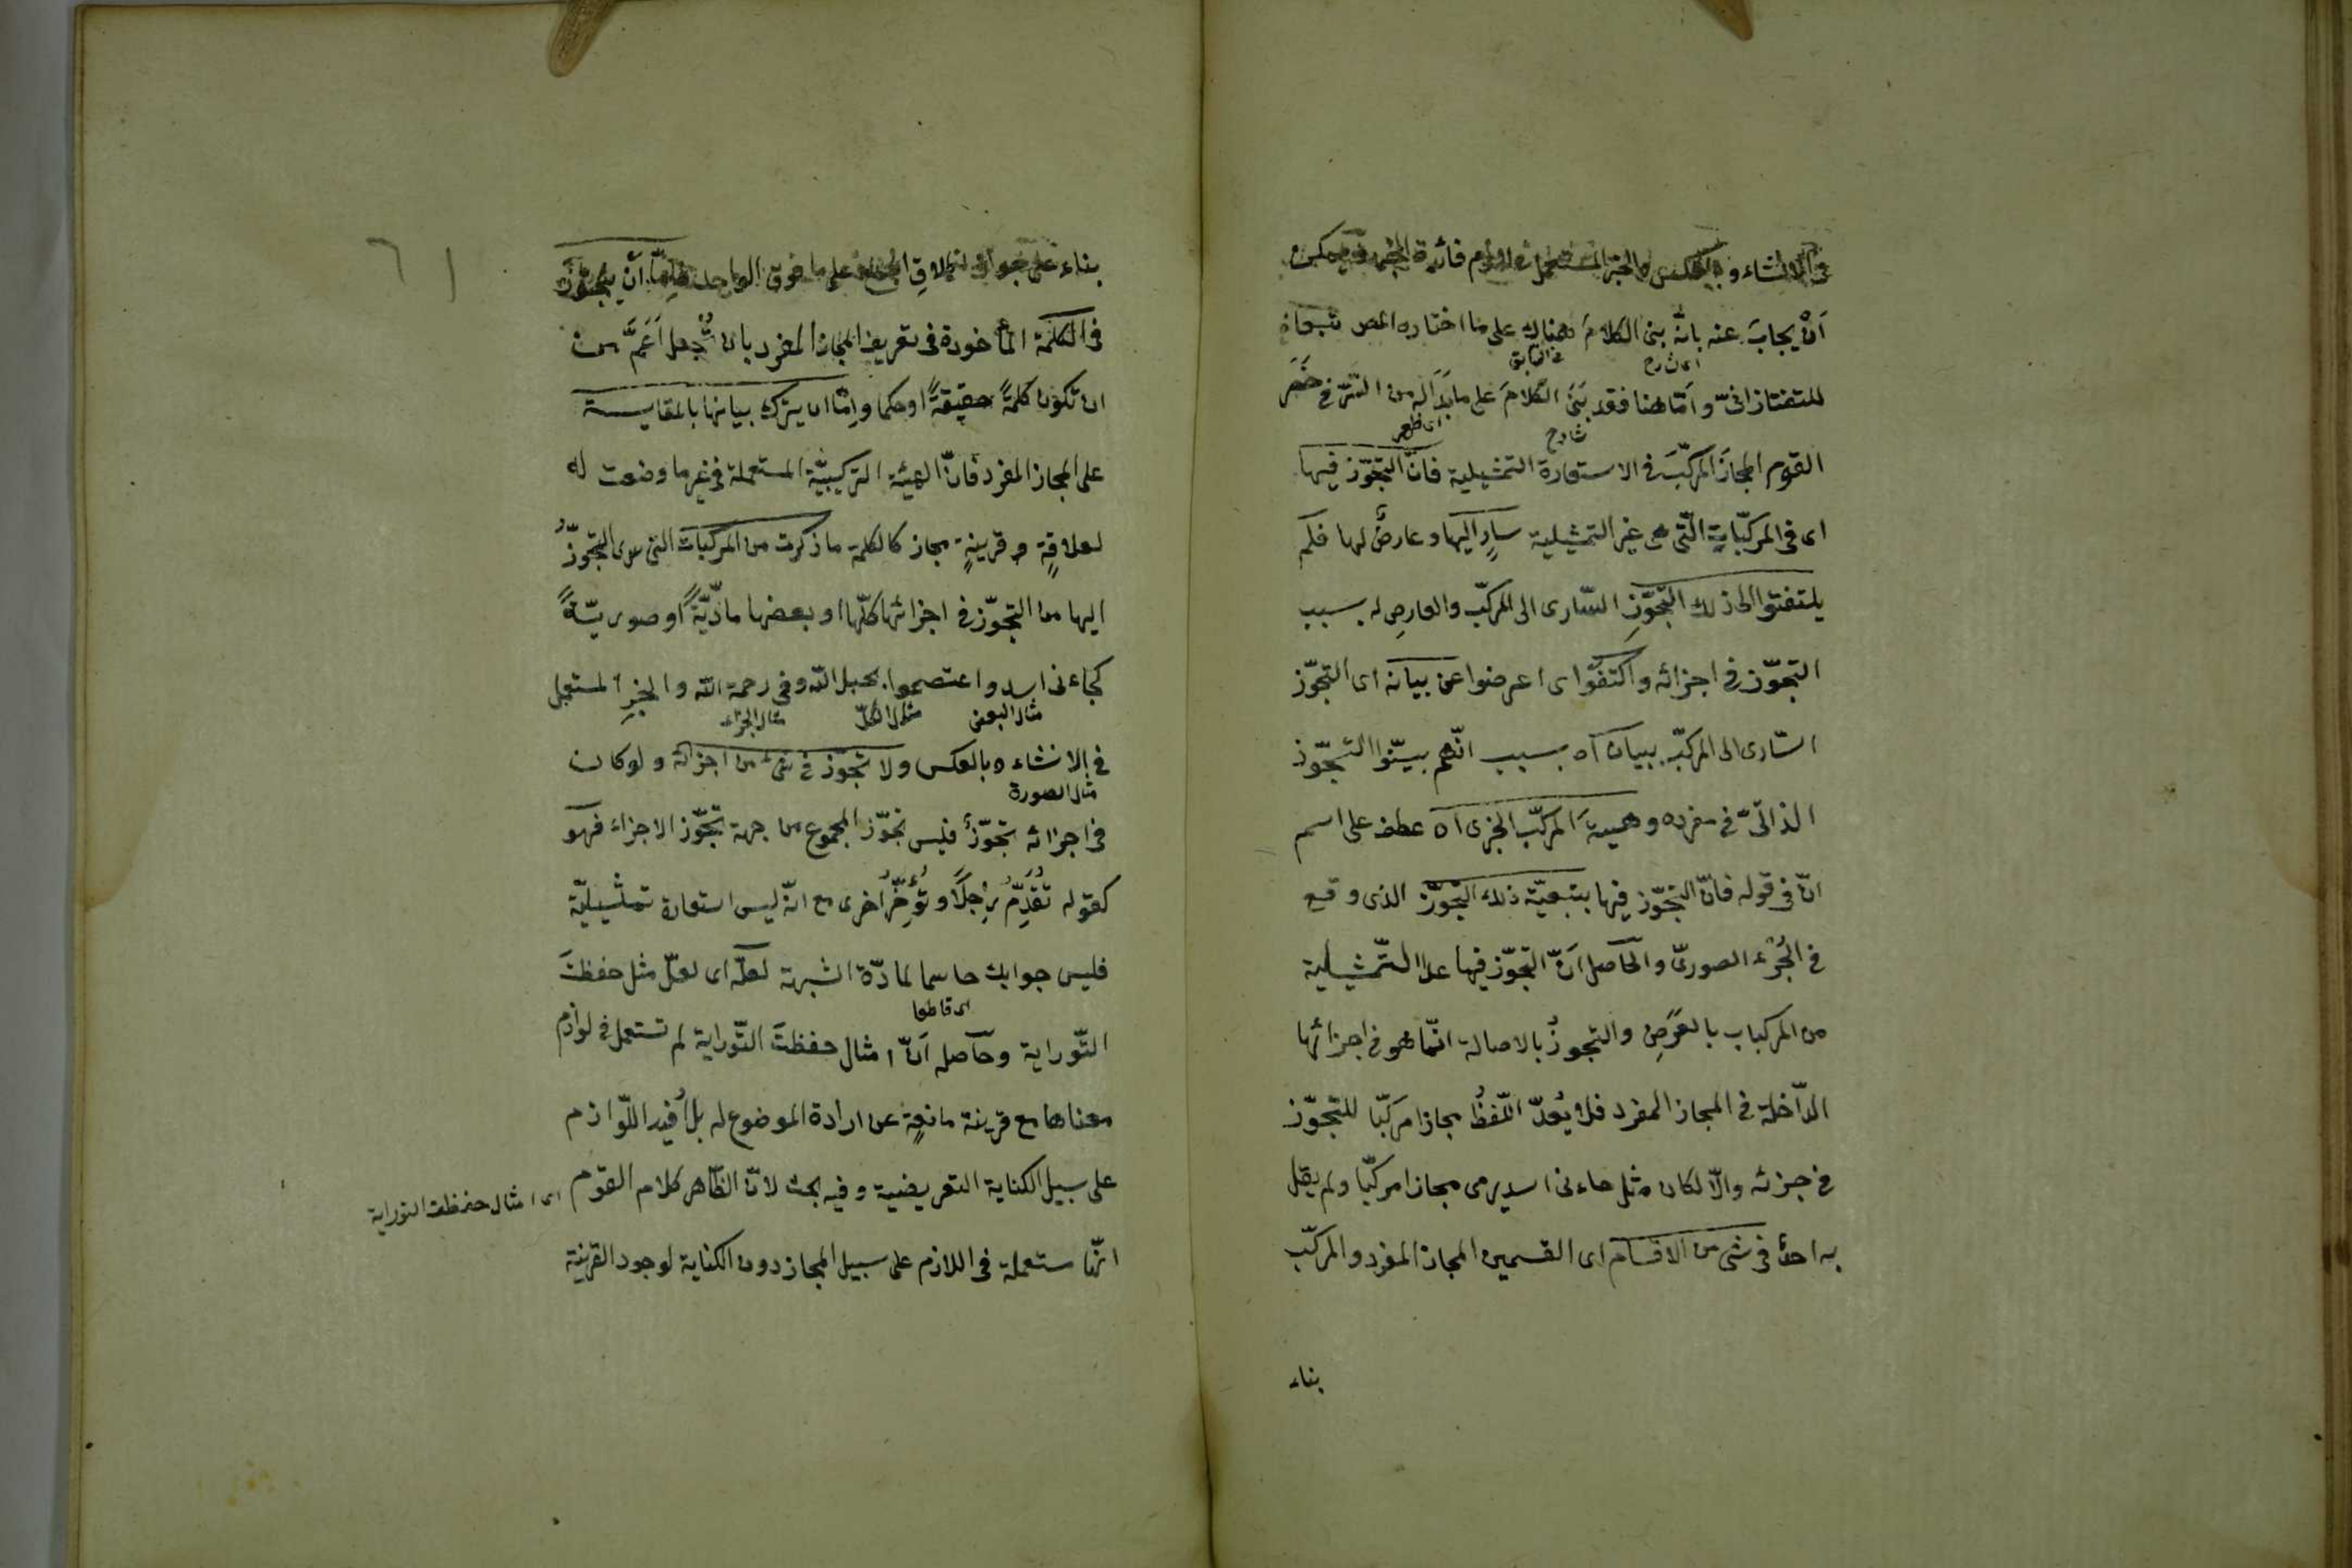 فى الانشاء وبالعكس والخبر المستعمل فى لازم فائدة الخبر ويمكن
اَنْ يجابَ عنه بانّه بنى الكلامَ هناك على ما اختاره المص تبعا
للتفتازانىّ واَمّا هنا فقد بَنَى الكلامَ على ما بَدَا له من
اى شارح
فى السابق
القوم المجازَ المركّبَ فى الاستعارة التمثيلية فانّ التجوّز فيها
شارح
اى ظهر
اى فى المركّباتِ الّتى هى غير التمثيلية سارٍ اليها وعارضٌ لها فلم
يلتفتوا الى ذلك التجوّزِ السّارى الى المركّب والعارضِ له بسبب
التجوّز فى اجزائه واكتفَوا اى اعرضوا عن بيانه اى التجوّز
السّارى الى المركّب ببيان اه بسبب انّهم بيّنوا التجوّز
الذاتىّ فى مفرده وهيئةَ المركّب الخبرى اه عطف على اسم
انّ فى قوله فانّ التجوّز فيها بتبعيّة ذلك التجوّز الذى وقع
فى الجُزء الصورىّ والحاصل اَنّ التجوّز فيها عدا التّمثيلية
من المركبات بالعَرَضِ والتجوزُ بالاصالة انّما هو فى اجزائها
الدّاخلة فى المجاز المفرد فلا يُعدّ اللّفظُ مجازا مركّبا للتجوّز
فى جزئه والّا لكان مثل جاءنى اسد يرمى مجازا مركّبا ولم يقل
به احدٌ فى شئ من الاقسام اى القسمين المجاز المفرد والمركّب
بناء
بناء على جواز اطلاقِ الجمع على ما فوق الواحد اَنْ يتجوّزَ
فى الكلمة المأخوذة فى تعريف المجاز المفرد بان تُجعل اَعَمَّ من
ان تكون كلمةً حقيقةً او حكما وامّا ان يترك بيانها بالمقايسة
على المجاز المفرد فانّ الهيئة التركيبيّة المستعملة فى غير ما وضعت له
لعلاقةٍ وقرينةٍ مجاز كالكلمة ما ذكرت من المركبات التى سرى التجوّزُ
اليها من التجوّز فى اجزائها كلّها او بعضها مادّيّةً او صوريّةً
كجاءنى اسد واعتصموا بحبل اللّه وفى رحمة اللّه والخبرِ المستعمل
مثال البعض
مثال الكلّ
مثال الجزء
فى الانشاء وبالعكس ولا تجوّز فى شئ من اجزائه ولو كان
مثال الصورة
فى اجزائه تجوّزٌ فليس تجوّز المجموع من جهة تجوّز الاجزاء فهو
كقوله تُقدِّمُ رِجلًا وتُؤَخِّرُ اُخرى مع انّه ليس استعارة تمثيليّة
فليس جوابك حاسما لمادّة الشبهة لعلّه اى لعلّ مثل حفظتَ
اى قاطعا
التّوراية وحاصله اَنّ امثال حفظتَ التّوراية لم تستعمل فى لوازم
معناها مع قرينة مانعةٍ عن ارادة الموضوع له بل اُفيد اللّوازم
على سبيل الكناية التعريضية وفيه بحث لانّ الظّاهر كلام القوم
اى امثال حفظت التوراية
انّها مستعملة فى اللازم على سبيل المجاز دون الكناية لوجود القرينة
٦١